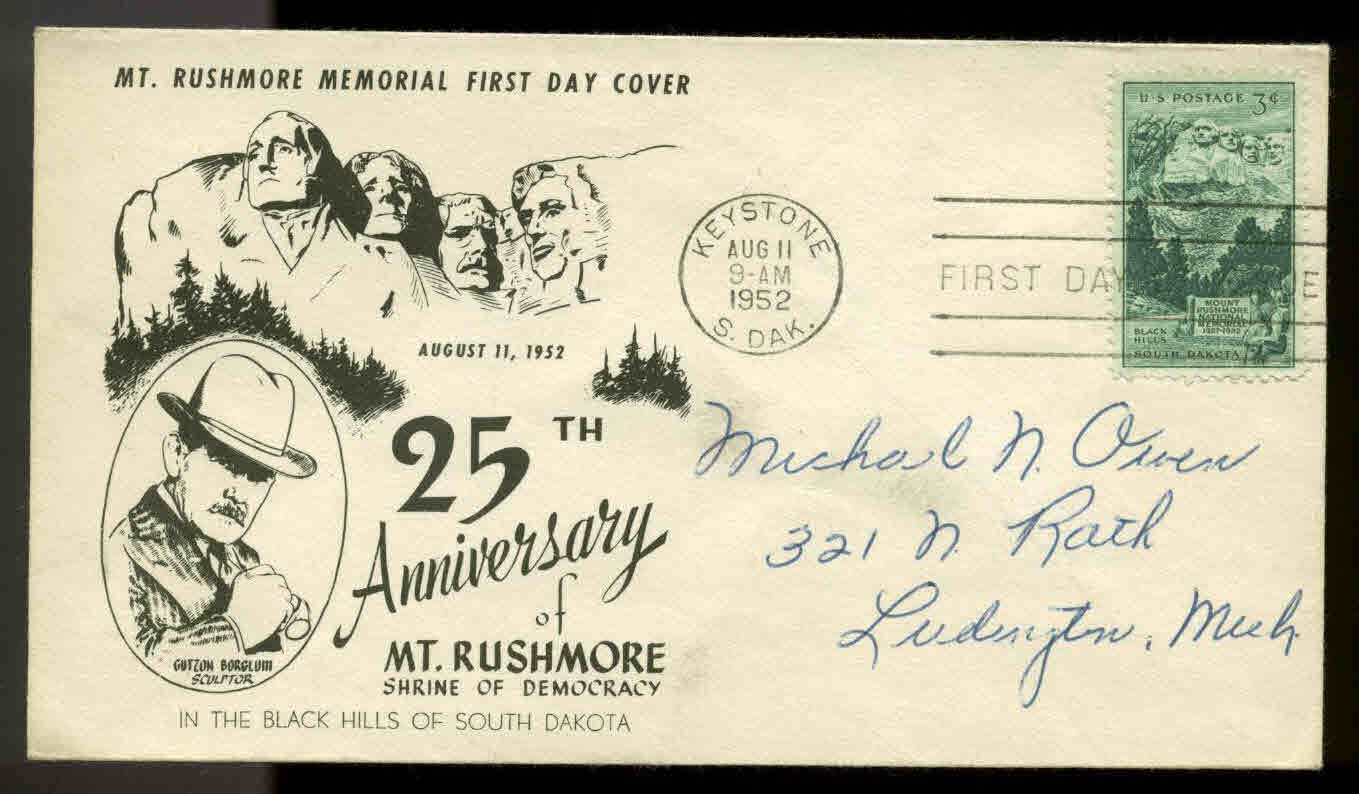 MT. RUSHMORE MEMORIAL FIRST DAY COVER
AUGUST 11, 1952
25TH
Anniversary
of
MT. RUSHMORE
SHRINE OF DEMOCRACY
IN THE BLACK HILLS OF SOUTH DAKOTA
GUTZON BORGLUM
SCULPTOR
KEYSTONE
AUG 11
9-AM
1952
S. DAK.
FIRST DAY E
U S POSTAGE 3¢
MOUNT
RUSHMORE
NATIONAL
MEMORIAL
1927-1952
BLACK
HILLS
SOUTH DAKOTA
Michael N. Owen
321 N. Rath
Ludington, Mich.